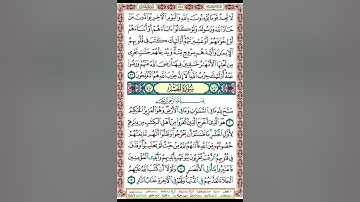 لَا تَجِدُ قَوْمًا يُّؤْمِنُوْنَ بِاللّٰهِ وَالْيَوْمِ الْاٰخِرِ يُوَآدُّوْنَ مَنْ
حَآدَّ اللّٰهَ وَرَسُوْلَهٗ وَلَوْ كَانُوْۤا اٰبَآءَهُمْ اَوْ اَبْنَآءَهُمْ
اَوْ اِخْوَانَهُمْ اَوْ عَشِيْرَتَهُمْ اُولٰٓئِكَ كَتَبَ فِيْ قُلُوْبِهِمُ
الْاِيْمَانَ وَاَيَّدَهُمْ بِرُوْحٍ مِّنْهُ وَيُدْخِلُهُمْ جَنّٰتٍ تَجْرِيْ
مِنْ تَحْتِهَا الْاَنْهٰرُ خٰلِدِيْنَ فِيْهَا رَضِيَ اللّٰهُ عَنْهُمْ وَرَضُوْا
عَنْهُ اُولٰٓئِكَ حِزْبُ اللّٰهِ اَلَاۤ اِنَّ حِزْبَ اللّٰهِ هُمُ الْمُفْلِحُوْنَ
سُوْرَةُ الْحَشْرِ
بِسْمِ اللّٰهِ الرَّحْمٰنِ الرَّحِيْمِ
سَبَّحَ لِلّٰهِ مَا فِي السَّمٰوٰتِ وَمَا فِي الْاَرْضِ وَهُوَ الْعَزِيْزُ الْحَكِيْمُ
هُوَ الَّذِيْۤ اَخْرَجَ الَّذِيْنَ كَفَرُوْا مِنْ اَهْلِ الْكِتٰبِ مِنْ دِيَارِهِمْ
لِاَوَّلِ الْحَشْرِ مَا ظَنَنْتُمْ اَنْ يَّخْرُجُوْا وَظَنُّوْۤا اَنَّهُمْ مَّانِعَتُهُمْ
حُصُوْنُهُمْ مِّنَ اللّٰهِ فَاَتٰىهُمُ اللّٰهُ مِنْ حَيْثُ لَمْ يَحْتَسِبُوْا وَقَذَفَ
فِيْ قُلُوْبِهِمُ الرُّعْبَ يُخْرِبُوْنَ بُيُوْتَهُمْ بِاَيْدِيْهِمْ وَاَيْدِي الْمُؤْمِنِيْنَ
فَاعْتَبِرُوْا يٰۤاُولِي الْاَبْصَارِ وَلَوْلَاۤ اَنْ كَتَبَ اللّٰهُ عَلَيْهِمُ
الْجَلَآءَ لَعَذَّبَهُمْ فِي الدُّنْيَا وَلَهُمْ فِي الْاٰخِرَةِ عَذَابُ النَّارِ